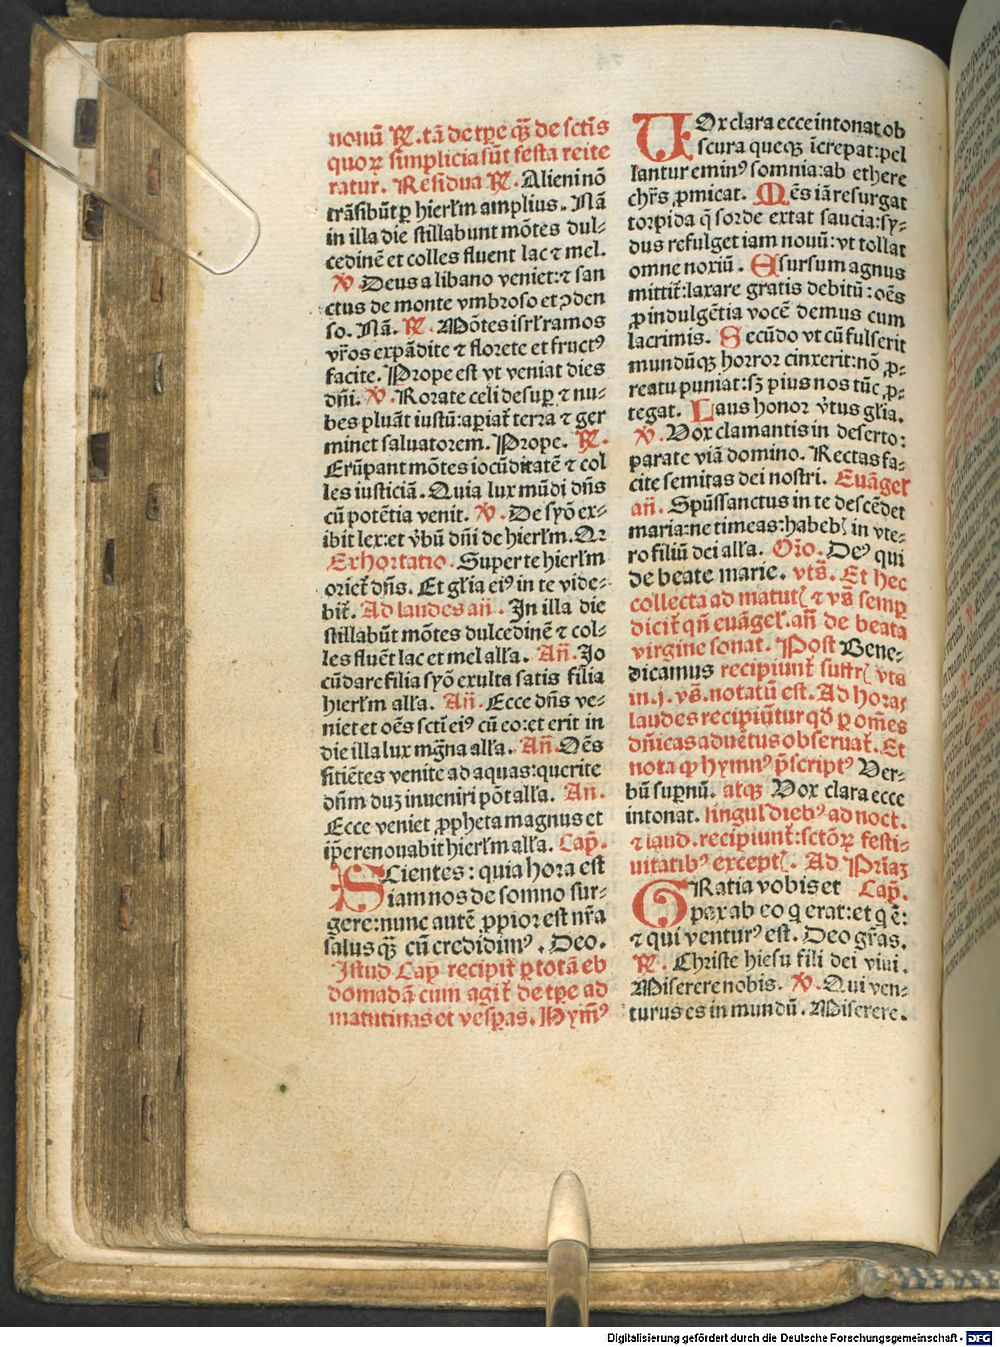 nonū ℞. tā de tp̄e q̄ȝ de sctīs
quoꝝ simplicia sūt festa reite
ratur. Residua ℞. Alieni nō
trāsibūt ꝑ hierl̄m amplius. Nā
in illa die stillabunt mōtes dul⸗
cedinē et colles fluent lac ⁊ mel.
℣. Deus a libano veniet: ⁊ san
ctus de monte vmbroso et ↄden
so. Nā. ℞. Mōtes isrl̄ ramos
vr̄os expādite ⁊ florete et fructꝰ
facite. Prope est vt veniat dies
dn̄i. ℣. Rorate celi desuꝑ ⁊ nu⸗
bes pluāt iustū: aꝑiat̄ terra ⁊ ger
minet saluatorem. Prope. ℞.
Erūpant mōtes iocūditatē ⁊ col
les iusticiā. Quia lux mūdi dn̄s
cū potētia venit. ℣. De syō ex⸗
ibit lex: et v̄bū dn̄i de hierl̄m. Qꝛ
Exhortatio. Super te hierl̄m
oriet̄ dn̄s. Et gl̄ia eiꝰ in te vide⸗
bit̄. Ad laudes an̄. In illa die
stillabūt mōtes dulcedinē ⁊ col⸗
les fluēt lac et mel all̄a. An̄. Jo
cūdare filia syō exulta satis filia
hierl̄m all̄a. An̄. Ecce dn̄s ve⸗
niet et oēs sctī eiꝰ cū eo: et erit in
die illa lux mḡna all̄a. An̄. Oēs
sitiētes venite ad aquas: querite
dn̄m duȝ inueniri pōt all̄a. An̄.
Ecce veniet ꝓpheta magnus et
ip̄e renouabit hierl̄m all̄a. Cap̄.
SCientes: quia hora est
iam nos de somno sur⸗
gere: nunc autē ꝓpior est nr̄a
salus q̄ȝ cū credidimꝰ. Deo.
Istud Cap̄ recipit̄ ꝑ totā eb
domadā cum agit̄ de tp̄e ad
matutinas et vesꝑas. Hym̄ꝰ
VOx clara ecce intonat ob
scura quecȝ īcrepat: pel
lantur eminꝰ somnia: ab ethere
chr̄s ꝓmicat. Mēs iā resurgat
torpida q̄ sorde extat saucia: sy⸗
dus refulget iam nouū: vt tollat
omne noxiū. E sursum agnus
mittit̄: laxare gratis debitū: oēs
ꝓ indulgētia vocē demus cum
lacrimis. Secūdo vt cū fulserit
mundūqȝ horror cinxerit: nō ꝓ⸗
reatu puniat: sȝ pius nos tūc ꝓ⸗
tegat. Laus honor v̄tus gl̄ia.
℣. Vox clamantis in deserto:
parate viā domino. Rectas fa⸗
cite semitas dei nostri. Euāgel̄
an̄. Spūssanctus in te descēdet
maria: ne timeas: habebꝭ in vte⸗
ro filiū dei all̄a. Or̄o. Deꝰ qui
de beate marie. vts̄. Et hec
collecta ad matutꝭ ⁊ vs̄ semꝑ
dicit̄ qn̄ euāgel̄. an̄ de beata
virgine sonat. Post Bene⸗
dicamus recipiunt̄ suffrꝭ vts
in. j. vs̄. notatū est. Ad horas
laudes recipiūtur qd̄ ꝑ om̄es
dn̄icas aduētus obseruat̄. Et
nota ꝙ hymnꝰ p̄scriptꝰ Ver⸗
bū suꝑnū. atqȝ Vox clara ecce
intonat. singul̄ diebꝰ ad noct.
⁊ laud. recipiunt̄: sctōꝝ festi⸗
uitatibꝰ exceptꝭ. Ad Prīaȝ
GRatia vobis et Cap̄.
pax ab eo q̄ erat: et q̄ ē:
⁊ qui venturꝰ est. Deo gr̄as.
℞. Christe hiesu fili dei viui.
Miserere nobis. ℣. Qui ven⸗
turus es in mundū. Miserere.
Digitalisierung gefördert durch die Deutsche Forschungsgemeinschaft - DFG